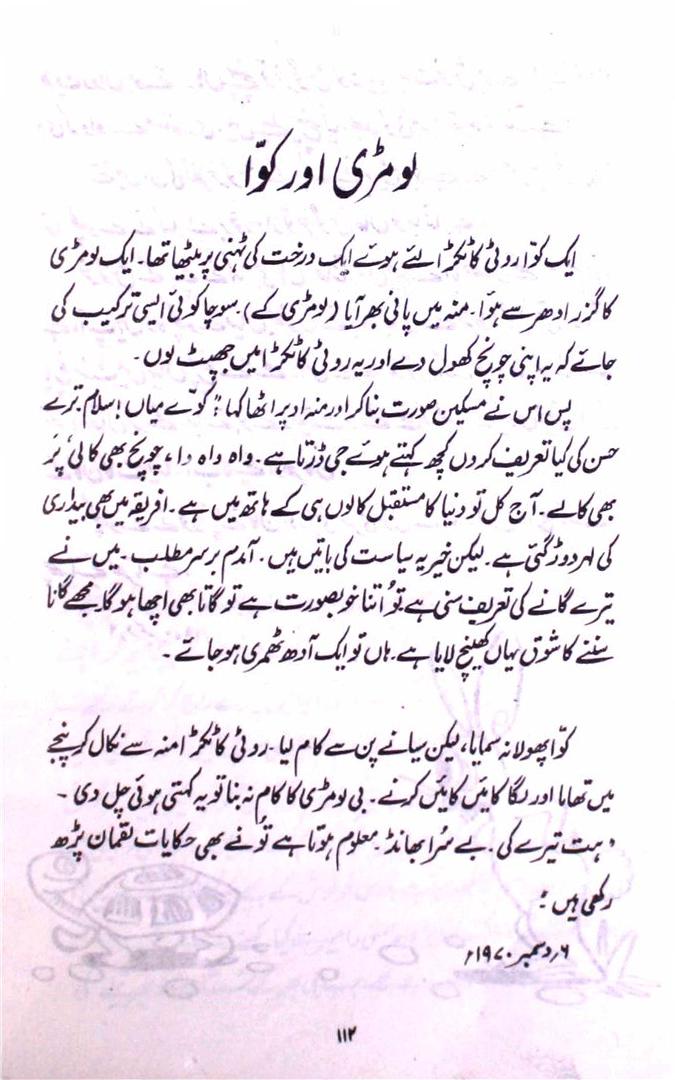 لومڑی اور کوّا
ایک کوّا روٹی کا ٹکڑا لئے ہوئے ایک درخت کی ٹہنی پر بیٹھا تھا۔ ایک لومڑی
کا گزر ادھر سے ہوٗا۔ منہ میں پانی بھر آیا (لومڑی کے)۔ سوچا کوئی ایسی ترکیب کی
جائے کہ یہ اپنی چونچ کھول دے اور یہ روٹی کا ٹکڑا میں جھپٹ لوں۔
پس اس نے مسکین صورت بنا کر اور منہ اوپر اٹھا کہا "کوّے میاں! سلام۔ ترے
حسن کی کیا تعریف کروں کچھ کہتے ہوئے جی ڈرتا ہے۔ واہ واہ وا، چونچ بھی کالی، پَر
بھی کالے۔ آج کل تو دنیا کا مستقبل کالوں ہی کے ہاتھ میں ہے۔ افریقہ میں بھی بیداری
کی لہر دوڑ گئی ہے۔ لیکن خیر یہ سیاست کی باتیں ہیں۔ آمدم برسرِ مطلب۔ میں نے
تیرے گانے کی تعریف سنی ہے تُو اُتنا خوبصورت ہے تو گاتا بھی اچھا ہوگا۔ مجھے گانا
سننے کا شوق یہاں کھینچ لایا ہے۔ ہاں تو ایک آدھ ٹھمری ہو جائے۔
کوّا پھولا نہ سمایا، لیکن سیانے پن سے کام لیا۔ روٹی کا ٹکڑا منہ سے نکال کر پنجے
میں تھاما اور لگا کائیں کائیں کرنے۔ بی لومڑی کا کام نہ بنا تو یہ کہتی ہوئی چل دی۔
"ہت تیرے کی۔ بے سُرا بھانڈ۔ معلوم ہوتا ہے تُو نے بھی حکایات لقمان پڑھ
رکھی ہیں!
۶؍ دسمبر ۱۹۷۰ء
۱۱۲